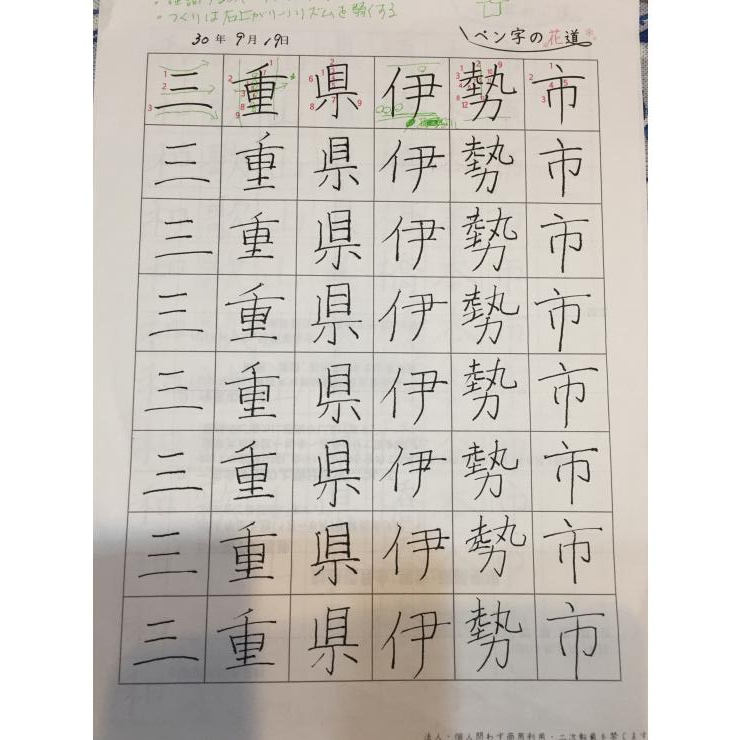 ・つくりは右上がりのリズムを強くする
30年9月19日
ペン字の花道
三重県伊勢市
三重県伊勢市
三重県伊勢市
三重県伊勢市
三重県伊勢市
三重県伊勢市
三重県伊勢市
三重県伊勢市
法人・個人問わず商用利用・二次転載を禁じます